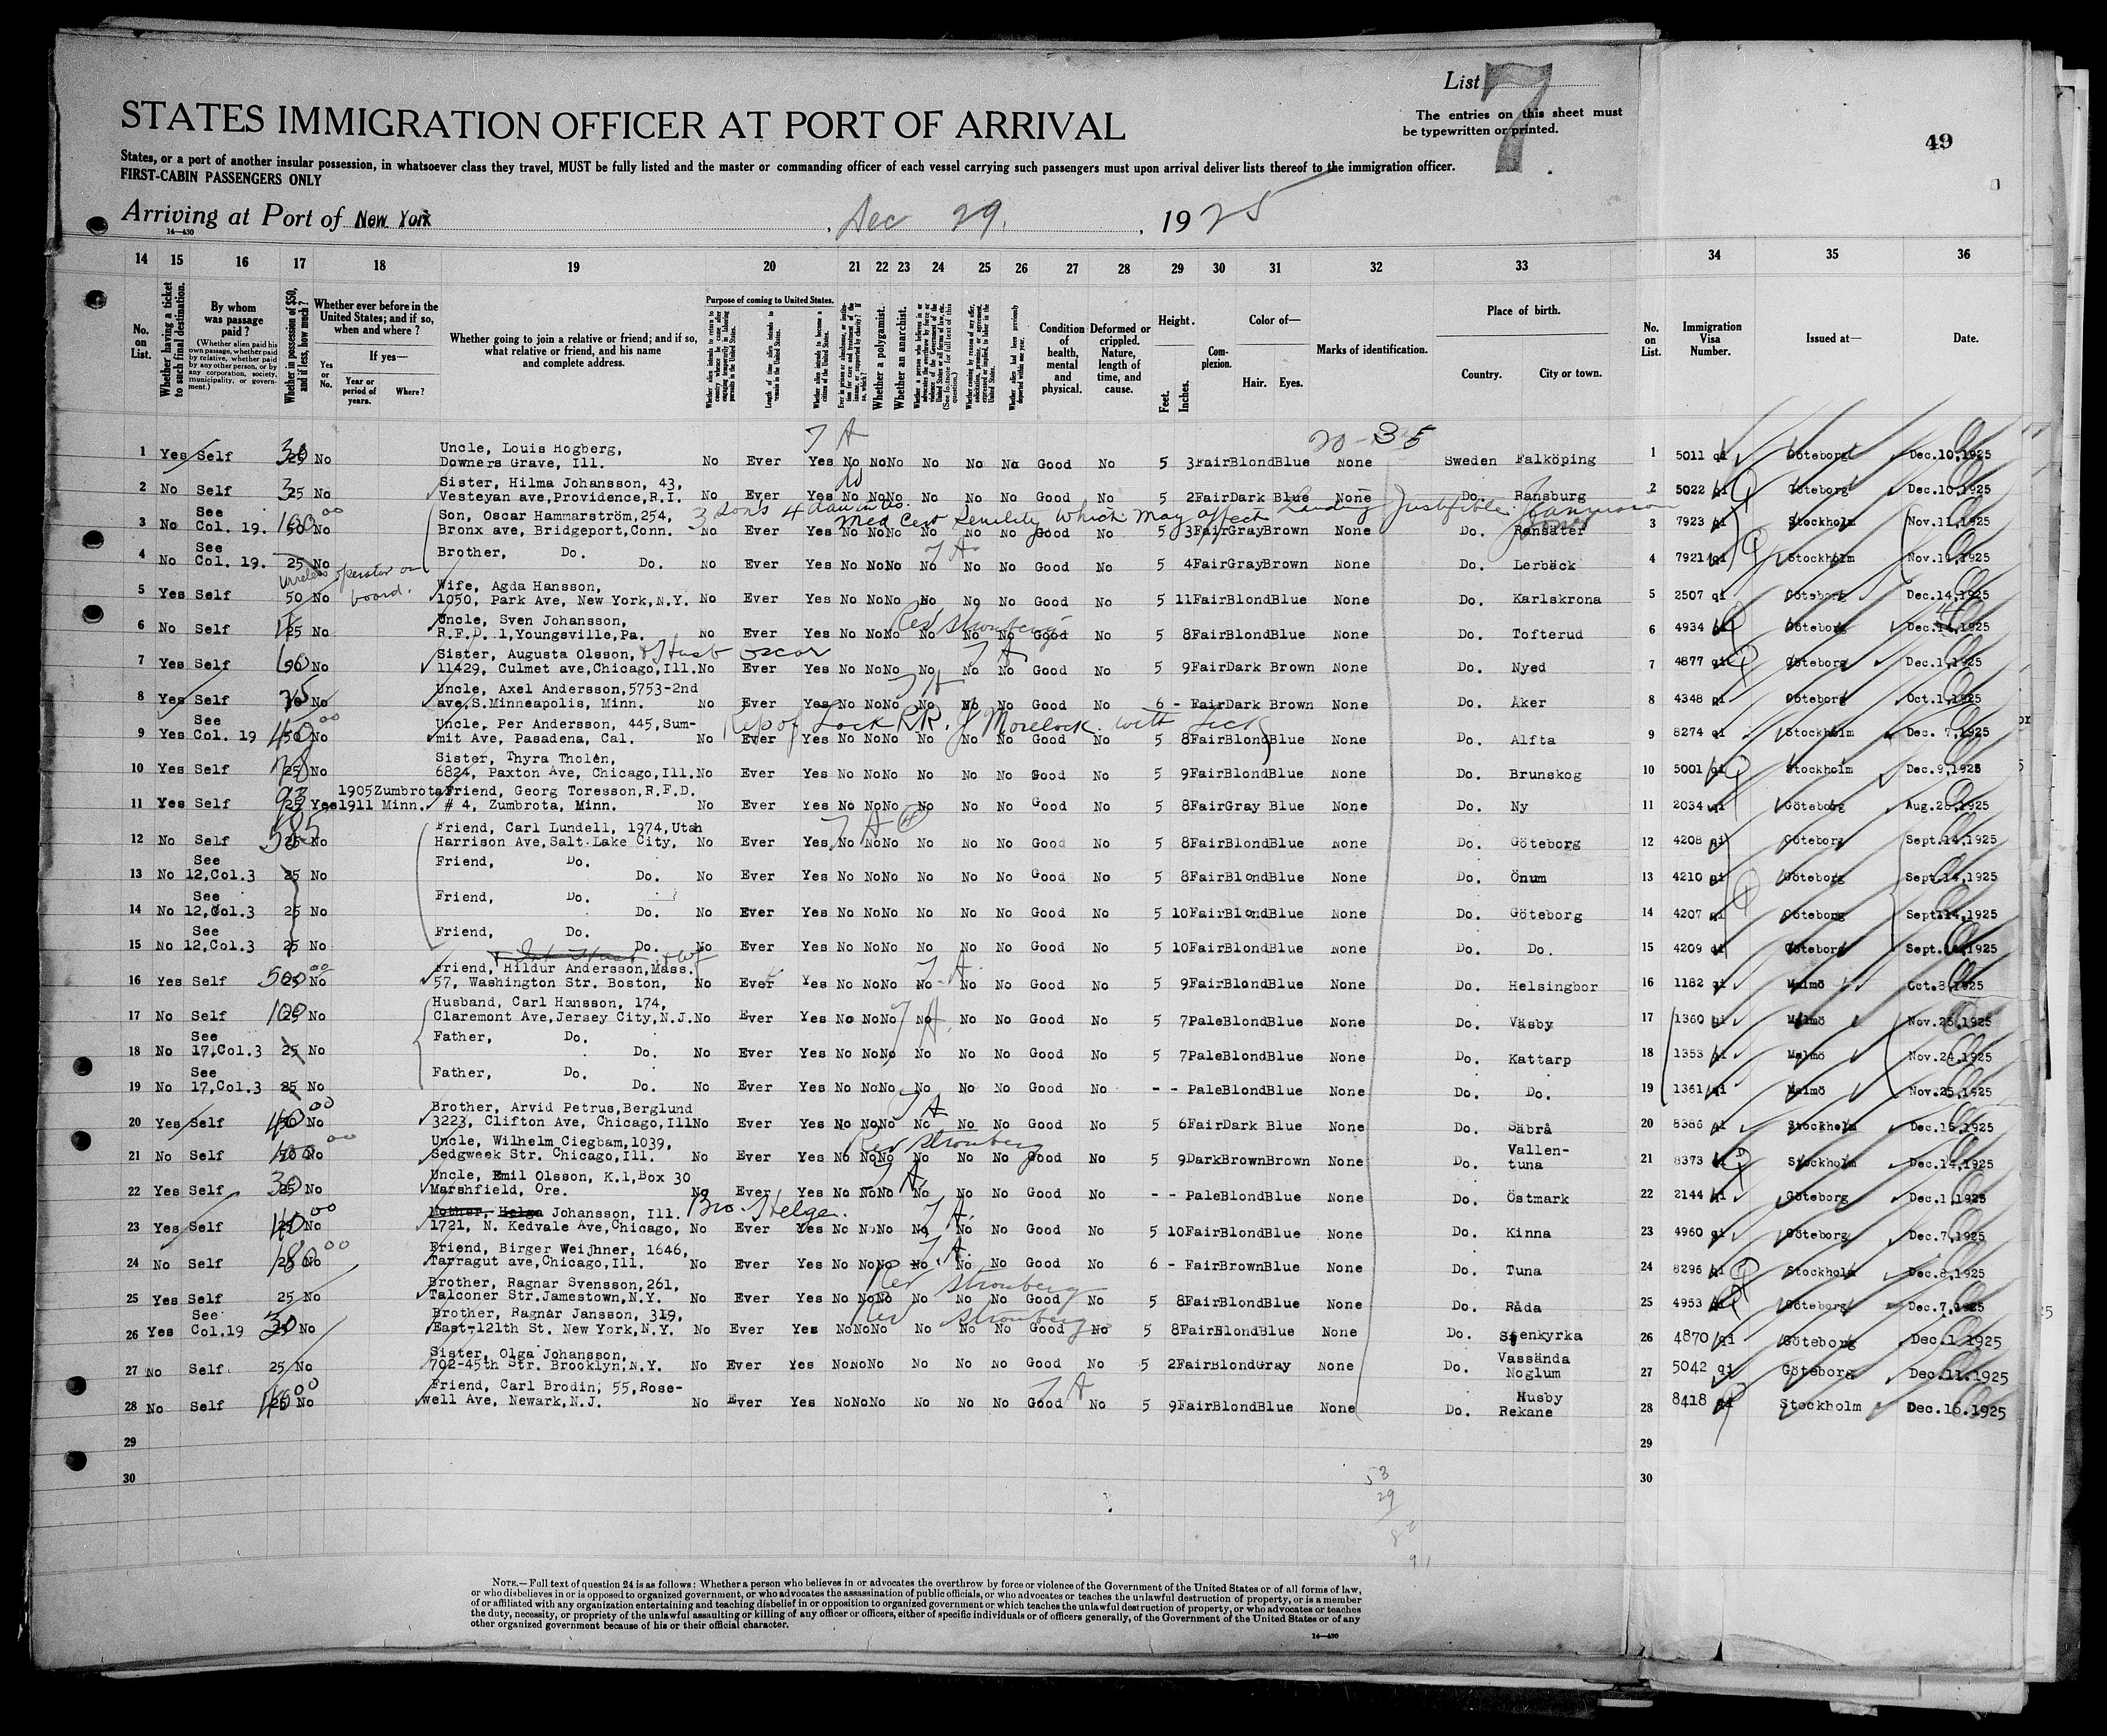 List 7
STATES IMMIGRATION OFFICER AT PORT OF ARRIVAL
The entries on this sheet must
be typewritten or printed.
49
States, or a port of another insular possession, in whatsoever class they travel, MUST be fully listed and the master or commanding officer of each vessel carrying such passengers must upon arrival deliver lists thereof to the immigration officer.
FIRST-CABIN PASSENGERS ONLY
Arriving at Port of New York, Dec 29, 1925
14—430
14 15 16 17 18 19 20 21 22 23 24 25 26 27 28 29 30 31 32 33 34 35 36
No. on List.
Whether having a ticket to such final destination.
By whom was passage paid?
(Whether alien paid his own passage, whether paid by relative, whether paid by any other person, or by any corporation, society, municipality, or government.)
Whether in possession of $50, and if less, how much?
Whether ever before in the United States; and if so, when and where?
Yes or No.
If yes—
Year or period of years.
Where?
Whether going to join a relative or friend; and if so, what relative or friend, and his name and complete address.
Purpose of coming to United States.
Whether a polygamist.
Whether an anarchist.
Condition of health, mental and physical.
Deformed or crippled. Nature, length of time, and cause.
Height.
Feet. Inches.
Complexion.
Color of—
Hair. Eyes.
Marks of identification.
Place of birth.
Country. City or town.
No. on List.
Immigration Visa Number.
Issued at—
Date.
20-35
1 Yes Self 30 25 No Uncle, Louis Hogberg, Downers Grave, Ill. No Ever Yes No No No No No No Good No 5 3 Fair Blond Blue None Sweden Falköping 1 5011 qi Göteborg Dec.10,1925
2 No Self 25 No Sister, Hilma Johansson, 43, Vesteyan ave,Providence,R.I. No Ever Yes No No No No No No Good No 5 2 Fair Dark Blue None Do. Ransburg 2 5022 qi Göteborg Dec.10,1925
3 sons 4 daun in US. Med Cert Senility which may affect Landing Justifible
3 No See Col. 19. 100 00 50 No Son, Oscar Hammarström,254, Bronx ave, Bridgeport,Conn. No Ever Yes No No No No No No Good No 5 3 Fair Gray Brown None Do. Ransäter 3 7923 qi Stockholm Nov.11,1925
4 No See Col. 19. 25 No Brother, Do. Do. No Ever Yes No No No No No No Good No 5 4 Fair Gray Brown None Do. Lerbäck 4 7921 qi Stockholm Nov.11,1925
Wireless operator on board.
5 Yes Self 50 No Wife, Agda Hansson, 1050, Park Ave, New York,N.Y. No Ever Yes No No No No No No Good No 5 11 Fair Blond Blue None Do. Karlskrona 5 2507 qi Göteborg Dec.14,1925
6 No Self 25 No Uncle, Sven Johansson, R.F.D. 1,Youngsville,Pa. No Ever Yes No No No No No No Good No 5 8 Fair Blond Blue None Do. Tofterud 6 4934 qi Göteborg Dec. 4,1925
Rev Stromberg
7 Yes Self 50 No Sister, Augusta Olsson, & Husb Oscar 11429, Culmet ave,Chicago,Ill. No Ever Yes No No No No No No Good No 5 9 Fair Dark Brown None Do. Nyed 7 4877 qi Göteborg Dec.1,1925
8 Yes Self 75 No Uncle, Axel Andersson,5753-2nd ave,S.Minneapolis, Minn. No Ever Yes No No No No No No Good No 6 - Fair Dark Brown None Do. Åker 8 4348 qi Göteborg Oct.1,1925
9 Yes See Col. 19 50 00 No Uncle, Per Andersson, 445,Summit Ave, Pasadena, Cal. No Ever Yes No No No No No No Good No 5 8 Fair Blond Blue None Do. Alfta 9 8274 qi Stockholm Dec. 7,1925
10 Yes Self 25 No Sister, Thyra Tholén, 6824, Paxton Ave, Chicago,Ill. No Ever Yes No No No No No No Good No 5 9 Fair Blond Blue None Do. Brunskog 10 5001 qi Stockholm Dec.9,1925
11 Yes Self 25 Yes 1905 1911 Zumbrota Minn. Friend, Georg Toresson,R.F.D. # 4, Zumbrota, Minn. No Ever Yes No No No No No No Good No 5 8 Fair Gray Blue None Do. Ny 11 2034 qi Göteborg Aug.28,1925
12 No Self 585 25 No Friend, Carl Lundell, 1974,Utah Harrison Ave,Salt Lake City, No Ever Yes No No No No No No Good No 5 8 Fair Blond Blue None Do. Göteborg 12 4208 qi Göteborg Sept.14,1925
13 No See 12,Col.3 25 No Friend, Do. Do. No Ever Yes No No No No No No Good No 5 8 Fair Blond Blue None Do. Önum 13 4210 qi Göteborg Sept.14,1925
14 No See 12,Col.3 25 No Friend, Do. Do. No Ever Yes No No No No No No Good No 5 10 Fair Blond Blue None Do. Göteborg 14 4207 qi Göteborg Sept.14,1925
15 No See 12,Col.3 25 No Friend, Do. Do. No Ever Yes No No No No No No Good No 5 10 Fair Blond Blue None Do. Do. 15 4209 qi Göteborg Sept.14,1925
16 Yes Self 500 00 25 No Friend, Hildur Andersson,Mass. 57, Washington Str. Boston, No Ever Yes No No No No No No Good No 5 9 Fair Blond Blue None Do. Helsingbor 16 1182 qi Malmö Oct.8,1925
17 No Self 100 25 No Husband, Carl Hansson, 174, Claremont Ave,Jersey City,N.J. No Ever Yes No No No No No No Good No 5 7 Pale Blond Blue None Do. Väsby 17 1360 qi Malmö Nov.25,1925
18 No See 17,Col.3 25 No Father, Do. Do. No Ever Yes No No No No No No Good No 5 7 Pale Blond Blue None Do. Kattarp 18 1353 qi Malmö Nov.24,1925
19 No See 17,Col.3 25 No Father, Do. Do. No Ever Yes No No No No No No Good No - - Pale Blond Blue None Do. Do. 19 1361 qi Malmö Nov.25,1925
20 Yes Self 50 00 No Brother, Arvid Petrus,Berglund 3223, Clifton Ave, Chicago,Ill No Ever Yes No No No No No No Good No 5 6 Fair Dark Blue None Do. Säbrå 20 8386 qi Stockholm Dec.15,1925
21 No Self 50 00 No Uncle, Wilhelm Ciegbam,1039, Sedgweek Str. Chicago,Ill. No Ever Yes No No No No No No Good No 5 9 Dark Brown Brown None Do. Vallentuna 21 8373 qi Stockholm Dec.14,1925
Rev Stromberg
22 Yes Self 30 25 No Uncle, Emil Olsson, K.1,Box 30 Marshfield, Ore. No Ever Yes No No No No No No Good No - - Pale Blond Blue None Do. Östmark 22 2144 qi Göteborg Dec.1,1925
23 Yes Self 40 00 25 No Mother, Helga Johansson, Ill. Bro. Helge. 1721, N. Kedvale Ave,Chicago, No Ever Yes No No No No No No Good No 5 10 Fair Blond Blue None Do. Kinna 23 4960 qi Göteborg Dec.7,1925
24 No Self 180 00 25 No Friend, Birger Weijhner, 1646, Tarragut ave,Chicago,Ill. No Ever Yes No No No No No No Good No 6 - Fair Brown Blue None Do. Tuna 24 8296 qi Stockholm Dec.8,1925
25 Yes Self 25 No Brother, Ragnar Svensson,261, Talconer Str.Jamestown,N.Y. No Ever Yes No No No No No No Good No 5 8 Fair Blond Blue None Do. Råda 25 4953 qi Göteborg Dec.7,1925
Rev Stromberg
26 Yes See Col.19 30 25 No Brother, Ragnar Jansson, 319, East-121th St. New York,N.Y. No Ever Yes No No No No No No Good No 5 8 Fair Blond Blue None Do. Stenkyrka 26 4870 qi Göteborg Dec.1 1925
Rev Stromberg
27 No Self 25 No Sister, Olga Johansson, 702-45th Str. Brooklyn,N.Y. No Ever Yes No No No No No No Good No 5 2 Fair Blond Gray None Do. Vassända Noglum 27 5042 qi Göteborg Dec.11.1925
28 No Self 25 00 No Friend, Carl Brodin, 55,Rosewell Ave, Newark,N.J. No Ever Yes No No No No No No Good No 5 9 Fair Blond Blue None Do. Husby Rekane 28 8418 qi Stockholm Dec.16.1925
29 29
30 30
53
29
NOTE.—Full text of question 24 is as follows: Whether a person who believes in or advocates the overthrow by force or violence of the Government of the United States or of all forms of law,
or who disbelieves in or is opposed to organized government, or who advocates the assassination of public officials, or who advocates or teaches the unlawful destruction of property, or is a member
of or affiliated with any organization entertaining and teaching disbelief in or opposition to organized government or which teaches the unlawful destruction of property, or who advocates or teaches
the duty, necessity, or propriety of the unlawful assaulting or killing of any officer or officers, either of specific individuals or of officers generally, of the Government of the United States or of any
other organized government because of his or their official character.
14—430